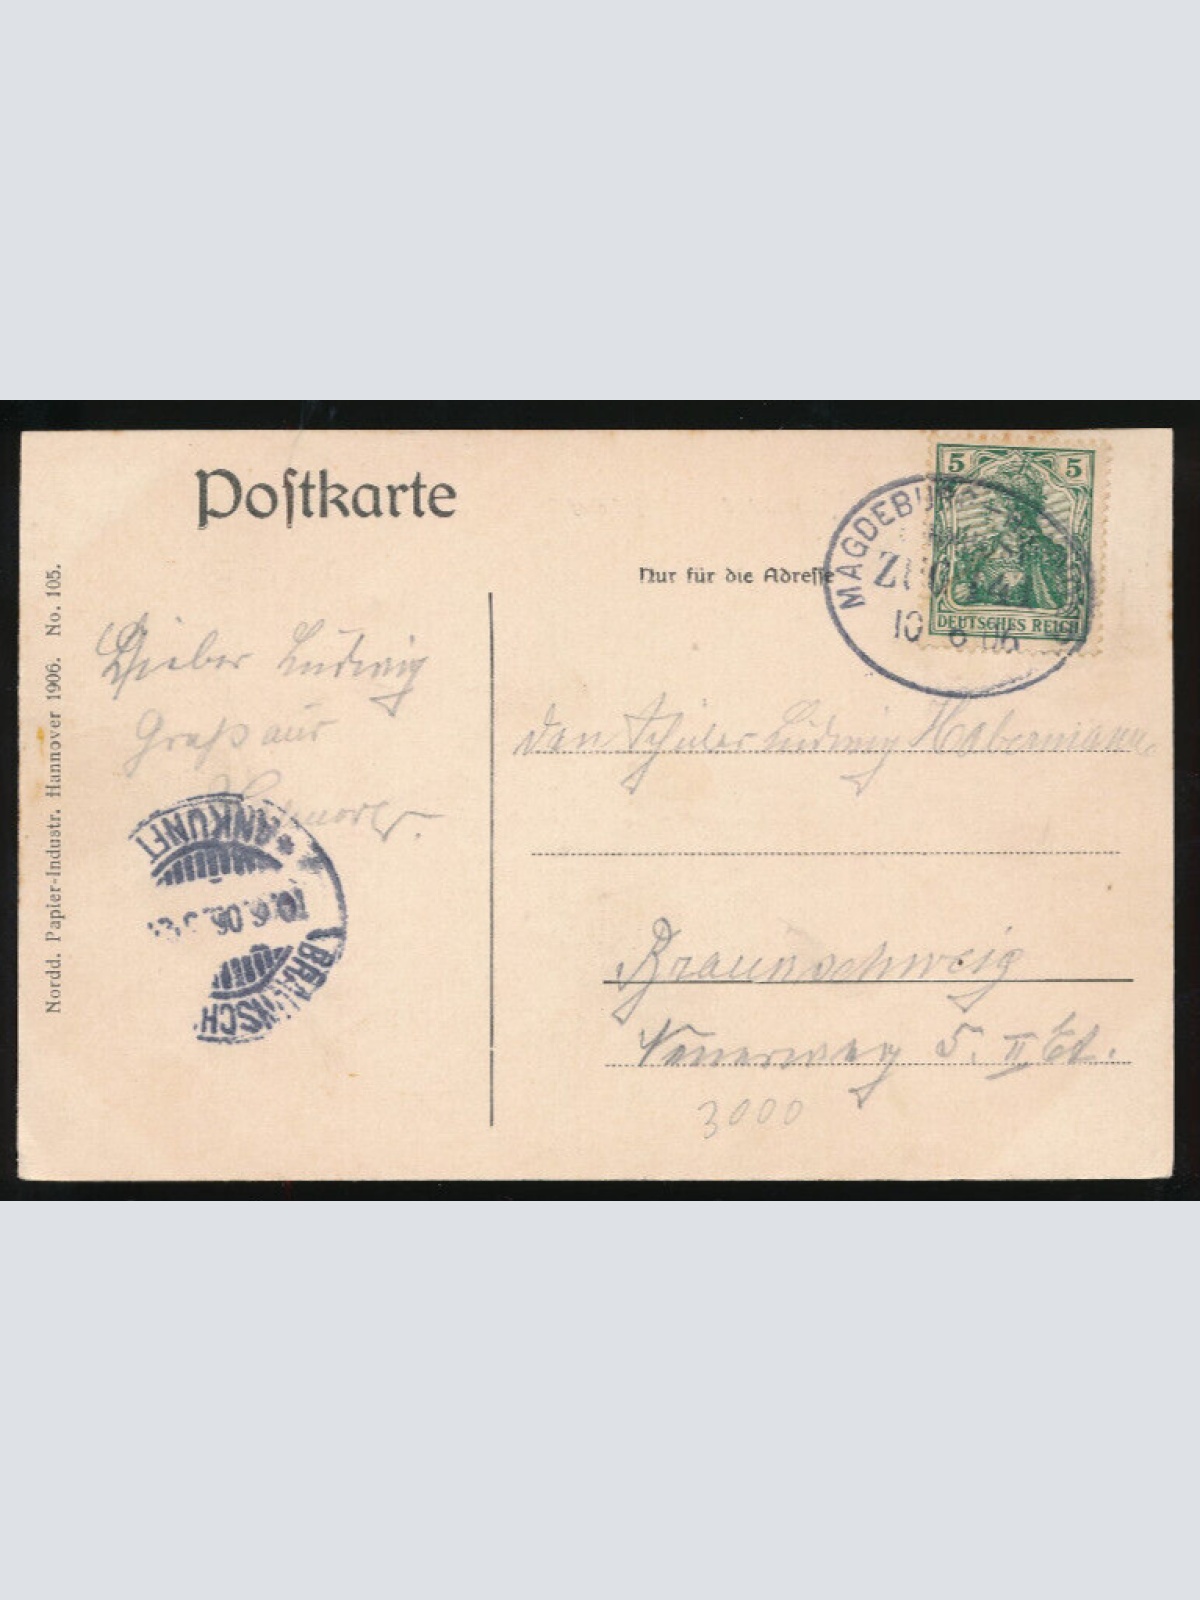 Postkarte
Nur für die Adresse
Nordd. Papier-Industr. Hannover 1906. No. 105.
5 5
DEUTSCHES REICH
MAGDEBURG
ZUG
10 6 06
Lieber Ludwig
Gruß aus
den Schüler Ludwig Habermann
ANKUNFT
10.6.06.
BRAUNSCH
Braunschweig
5. II Et.
3000